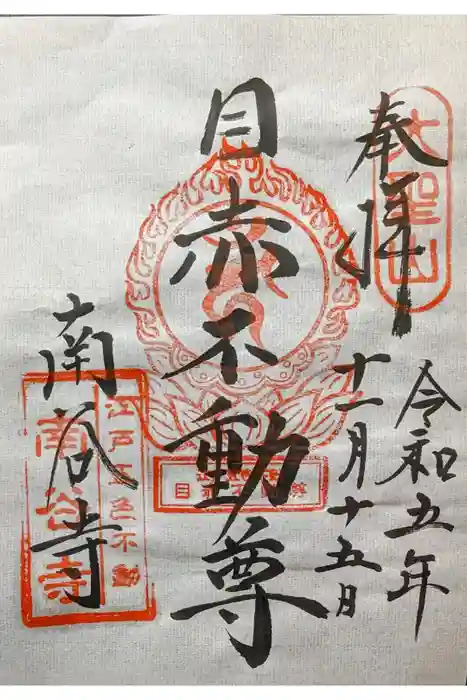 奉拝
大聖山
令和五年
十一月十五日
目赤不動尊
江戸五色不動
南谷寺
南谷寺